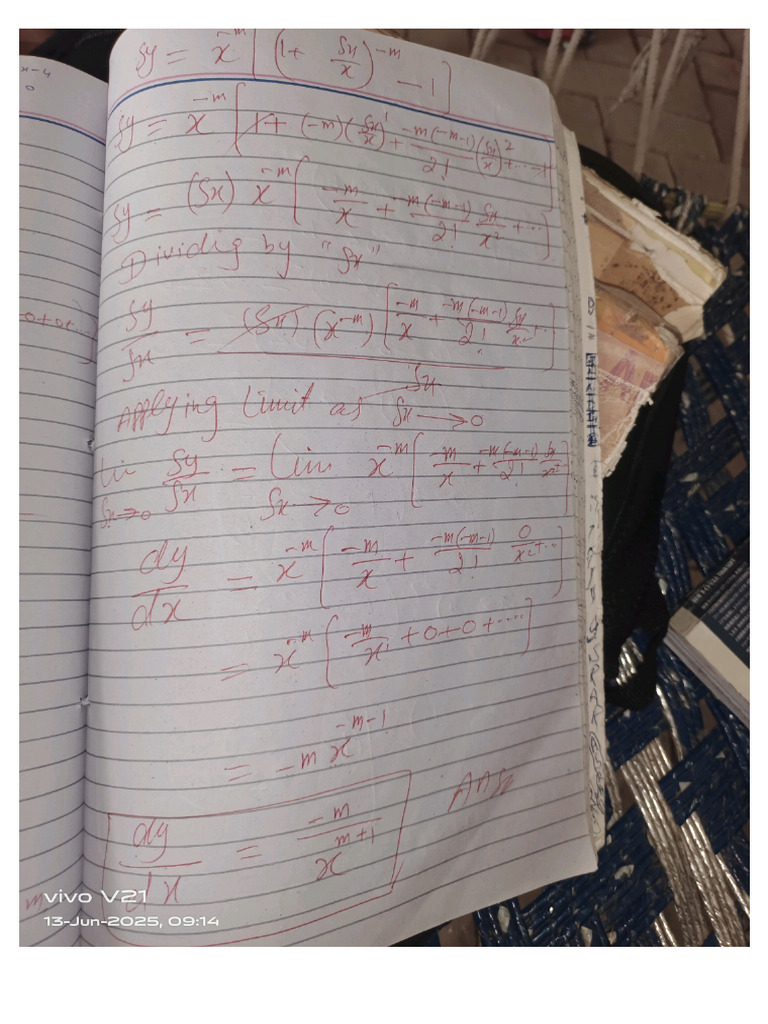 x-4
0
δy = x^-m [(1+ δx/x)^-m - 1]
δy = x^-m [1+ (-m)(δx/x)^1 + -m(-m-1)/2! (δx/x)^2 + ... -1]
δy = (δx) x^-m [-m/x + -m(-m-1)/2! δx/x^2 + ...]
Dividig by "δx"
0+0+...]
δy/δx = (δx)(x^-m) [-m/x + -m(-m-1)/2! δx/x^2 + ...] / δx
Applying Limit as δx → 0
Li δx→0 δy/δx = Lim δx→0 x^-m [-m/x + -m(-m-1)/2! δx/x^2 + ...]
dy/dx = x^-m [-m/x + -m(-m-1)/2! 0/x^2 + ...]
= x^-m [-m/x^1 + 0+0+....]
= -m x^-m-1
Ans
dy/dx = -m/x^m+1
m
vivo V21
13-Jun-2025, 09:14